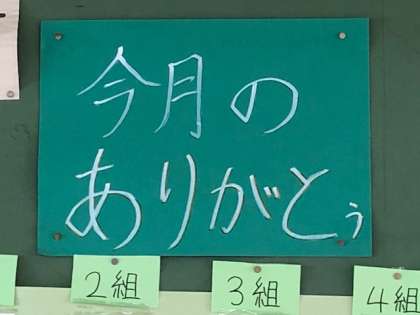 今月の
ありがとう
2組
3組
4組